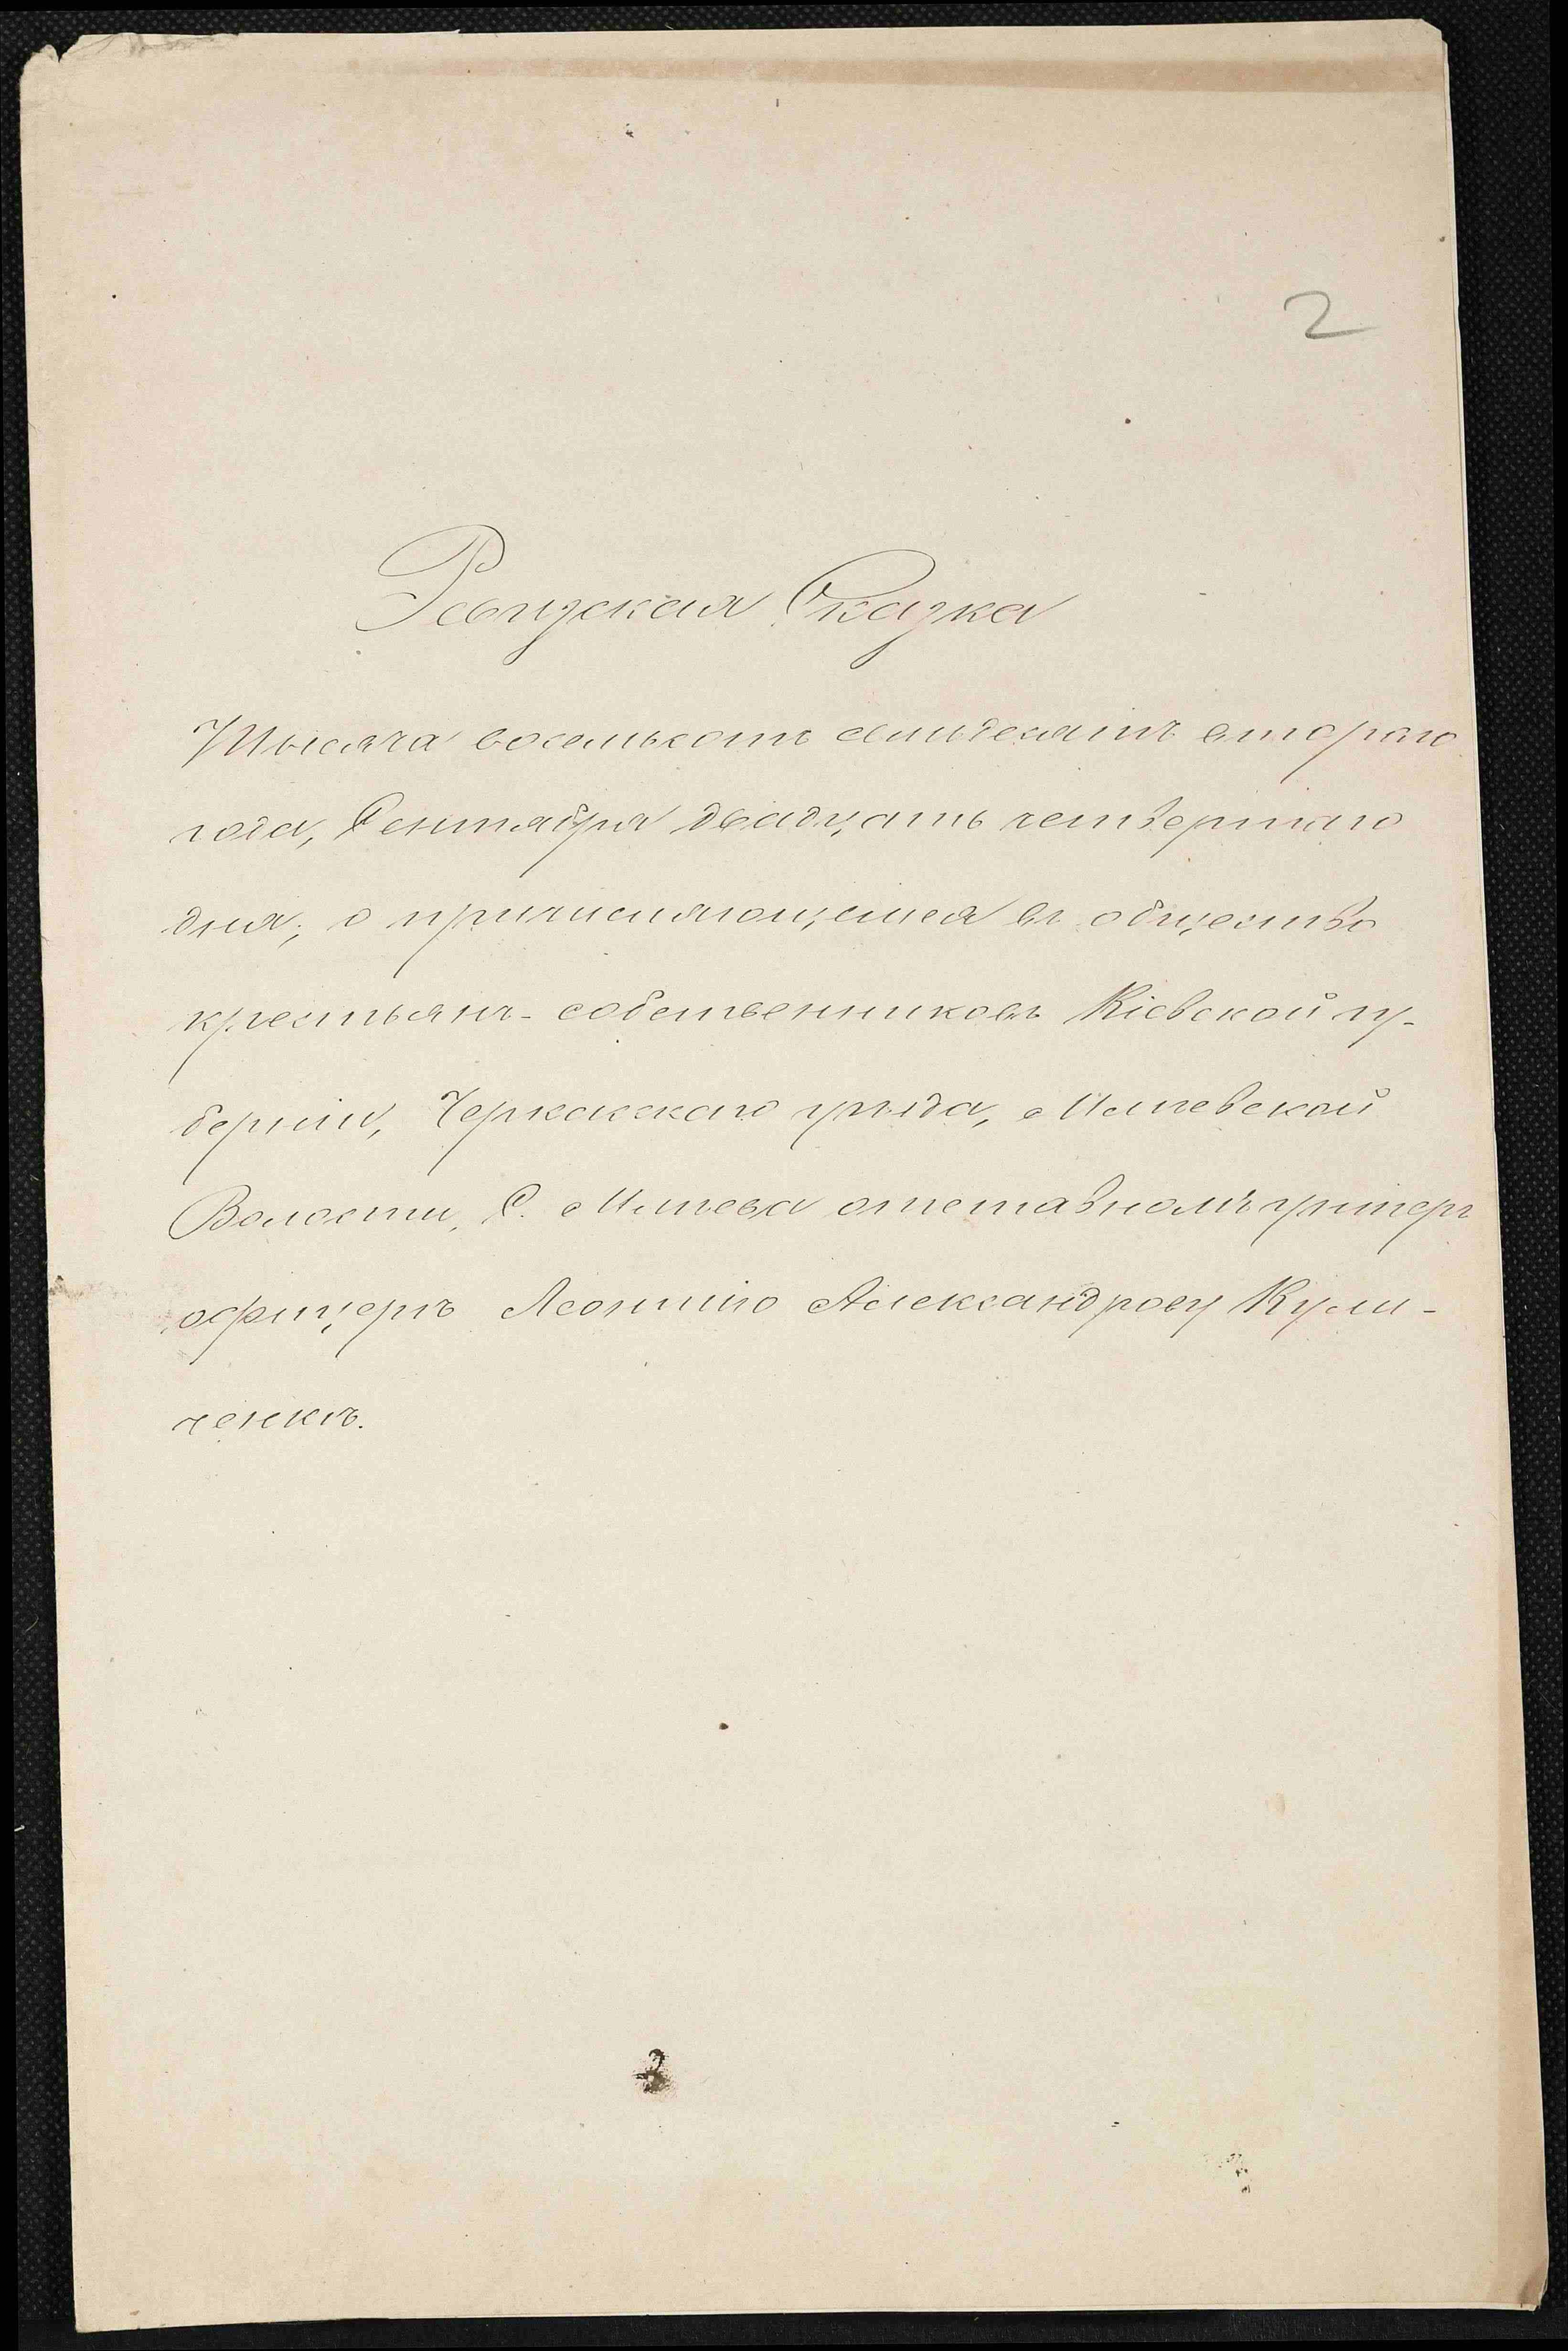 2
Ревизская Сказка
Тысяча восемьсотъ семьдесятъ втораго
года, Сентября двадцать четвертаго
дня, о причисляющемся въ общество
крестьянъ-собственниковъ Кіевской гу-
берніи, Черкасскаго уѣзда, Мліевской
Волости, С. Мліева отставномъ унтеръ
офицерѣ Леонтію Александрову Кули-
ченкѣ.